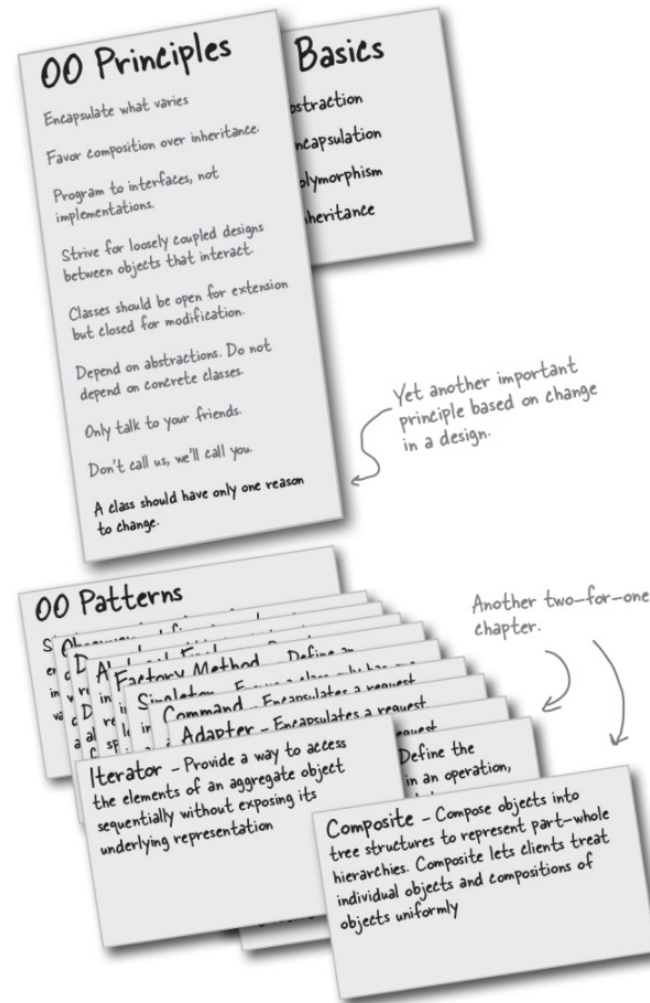 OO Principles
Encapsulate what varies
Favor composition over inheritance.
Program to interfaces, not
implementations.
Strive for loosely coupled designs
between objects that interact.
Classes should be open for extension
but closed for modification.
Depend on abstractions. Do not
depend on concrete classes.
Only talk to your friends.
Don't call us, we'll call you.
A class should have only one reason
to change.
Basics
bstraction
ncapsulation
olymorphism
nheritance
Yet another important
principle based on change
in a design.
OO Patterns
Factory Method - Define an
Singleton
Command - Encapsulates a request
Adapter - Encapsulates a request
Define the
in an operation,
Iterator - Provide a way to access
the elements of an aggregate object
sequentially without exposing its
underlying representation
Another two-for-one
chapter.
Composite - Compose objects into
tree structures to represent part-whole
hierarchies. Composite lets clients treat
individual objects and compositions of
objects uniformly